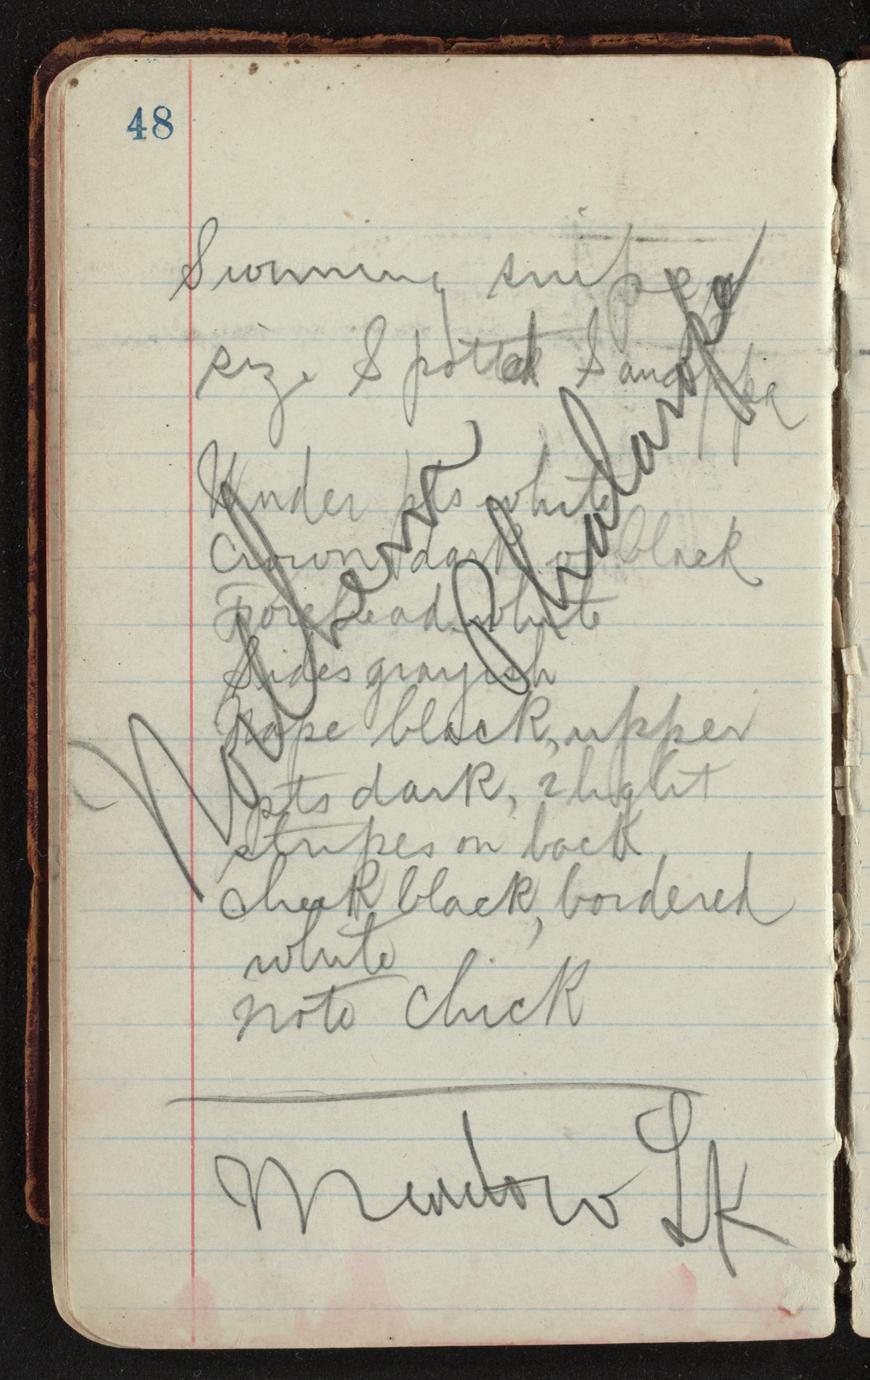 48
Swimming snipe
size Spotted Sandppr
Under pts white
Crown dark or black
Forehead white
Sides grayish
Nape black, upper
pts dark, 2 light
stripes on back
cheek black, bordered
white
note chick
Northern
Phalarope
Meadow Lk